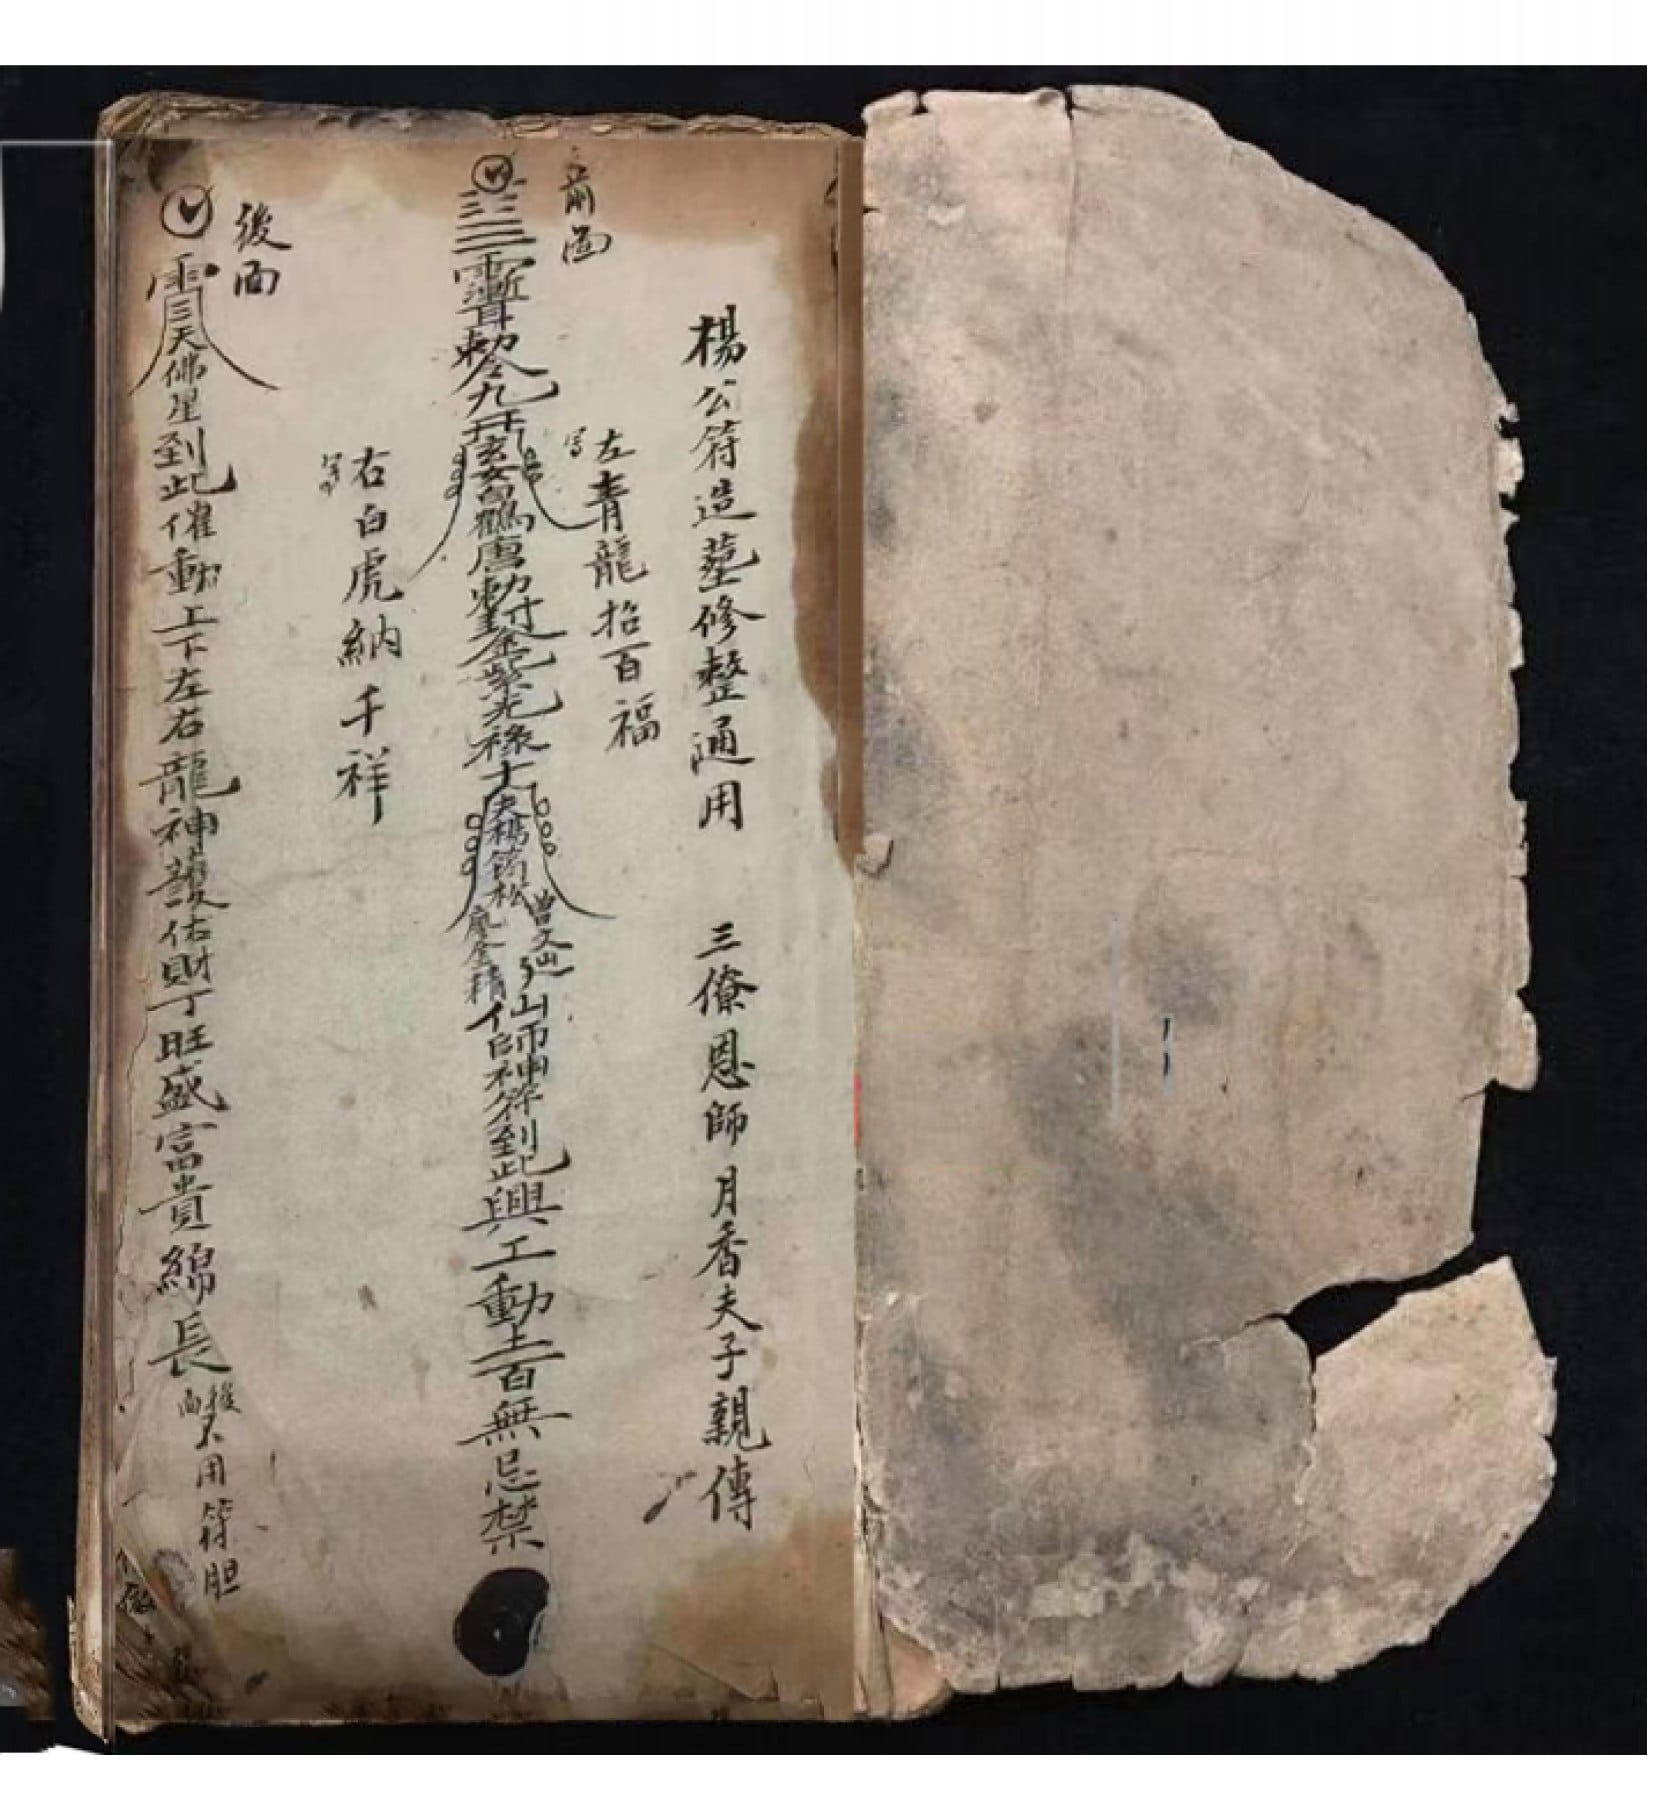 楊公符造墓修整通用 三僚恩師月香夫子親傳
前面
左青龍招百福
敕令九天玄女白鶴唐敕封金紫光祿大夫楊筠松仙師神符到此興工動土百無忌禁
曾文辿
廖金精
右白虎納千祥
後面
天佛星到此催動上下左右龍神護佑財丁旺盛富貴綿長
後面不用符胆